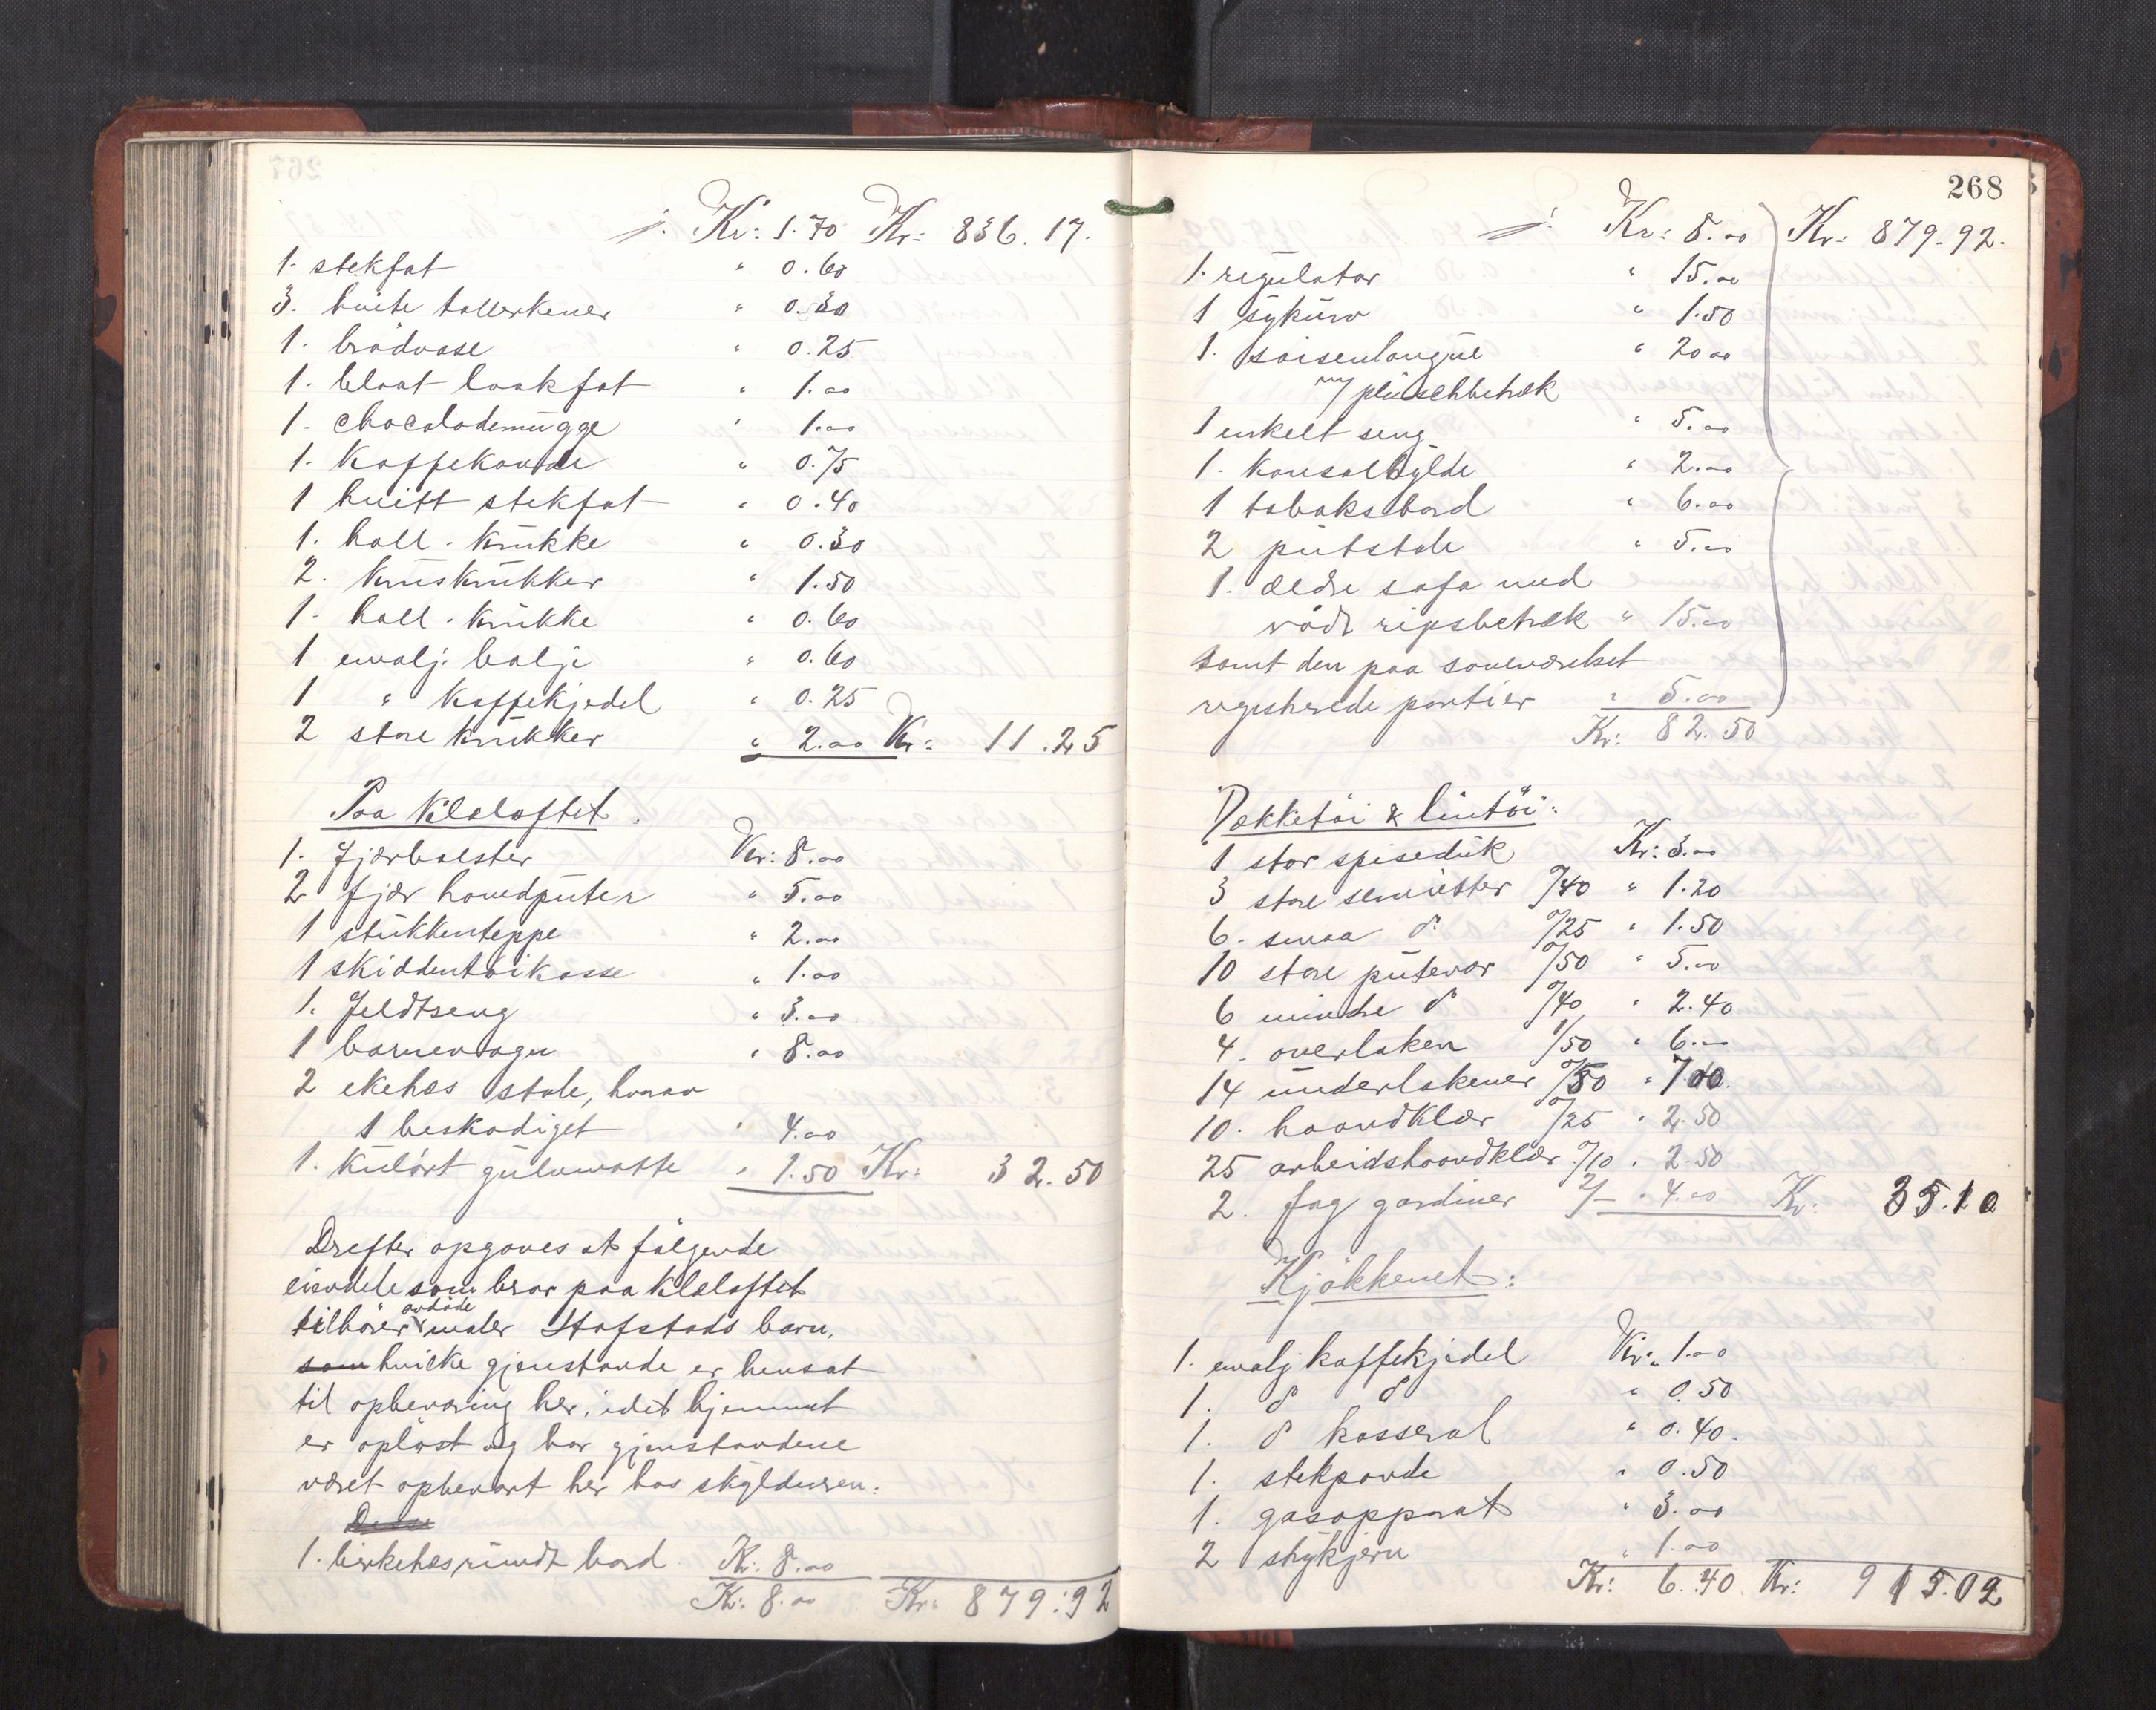 Kr: 1.70 Kr: 836.17.
1. stekfat " 0.60
3. hvite tallerkener " 0.30
1. brödvase " 0.25
1. blaat laakfat " 1.00
1. chocolademugge " 1.00
1. Kaffekande " 0.75
1 hvitt stekfat " 0.40
1. holl. Krukke " 0.30
2. Kruskrukker " 1.50
1. holl. Krukke " 0.60
1 emalj. balje " 0.60
1 " Kaffekjedel " 0.25
2 store Krukker " 2.00 Kr: 11.25
Paa Klæloftet.
1. fjærbolster Kr: 8.00
2 fjær hovedputer " 5.00
1 stukkenteppe " 2.00
1 skiddentöikasse " 1.00
1. Feldtseng " 3.00
1 barnevogn " 8.00
2 ekehæs stole, hvorav
1 beskadiget " 4.00
1. Kulört gulvmatte " 1.50 Kr: 32.50
Drefter opgaves at fölgende
eiendele som beror paa Klæloftet
tilhörer avdöde maler Stafstads barn,
som hvilke gjenstande er hensat
til opbevaring her, idet hjemmet
er oplöst og har gjenstandene
været opbevart her hos skyldneren:
1. birkehæs rundt bord Kr: 8.00
Kr: 8.00 Kr: 879.92
268
Kr: 8.00 Kr: 879.92.
1. regulator " 15.00
1 sykurv " 1.50
1. saisenlongue " 20.00
m/ pluschbetræk
1 enkelt seng " 5.00
1. Konsolhylde " 2.00
1 tobaksbord " 6.00
2 putstole " 5.00
1. ældre sofa med
rödt ripsbetræk " 15.00
samt den paa soveværelset
registrerede portier " 5.00
Kr: 82.50
Dækketöi & lintöi:
1 stor spiseduk Kr: 3.00
3 store servietter 0/40 " 1.20
6. smaa do 0/25 " 1.50
10 store putevar 0/50 " 5.00
6 mindre do 0/40 " 2.40
4. overlaken 1/50 " 6.—
14 underlakener 0/50 " 7.00
10. haandklær 0/25 " 2.50
25 arbeidshaandklær 0/10 " 2.50
2. fag gardiner 2/— " 4.00 Kr: 35.10
Kjökkenet:
1. emalj kaffekjedel Kr: 1.00
1. do do " 0.50
1. do kasserol " 0.40.
1. stekpande " 0.50
1. gasapparat " 3.00
2 strykjern " 1.00
Kr: 6.40 Kr: 915.02